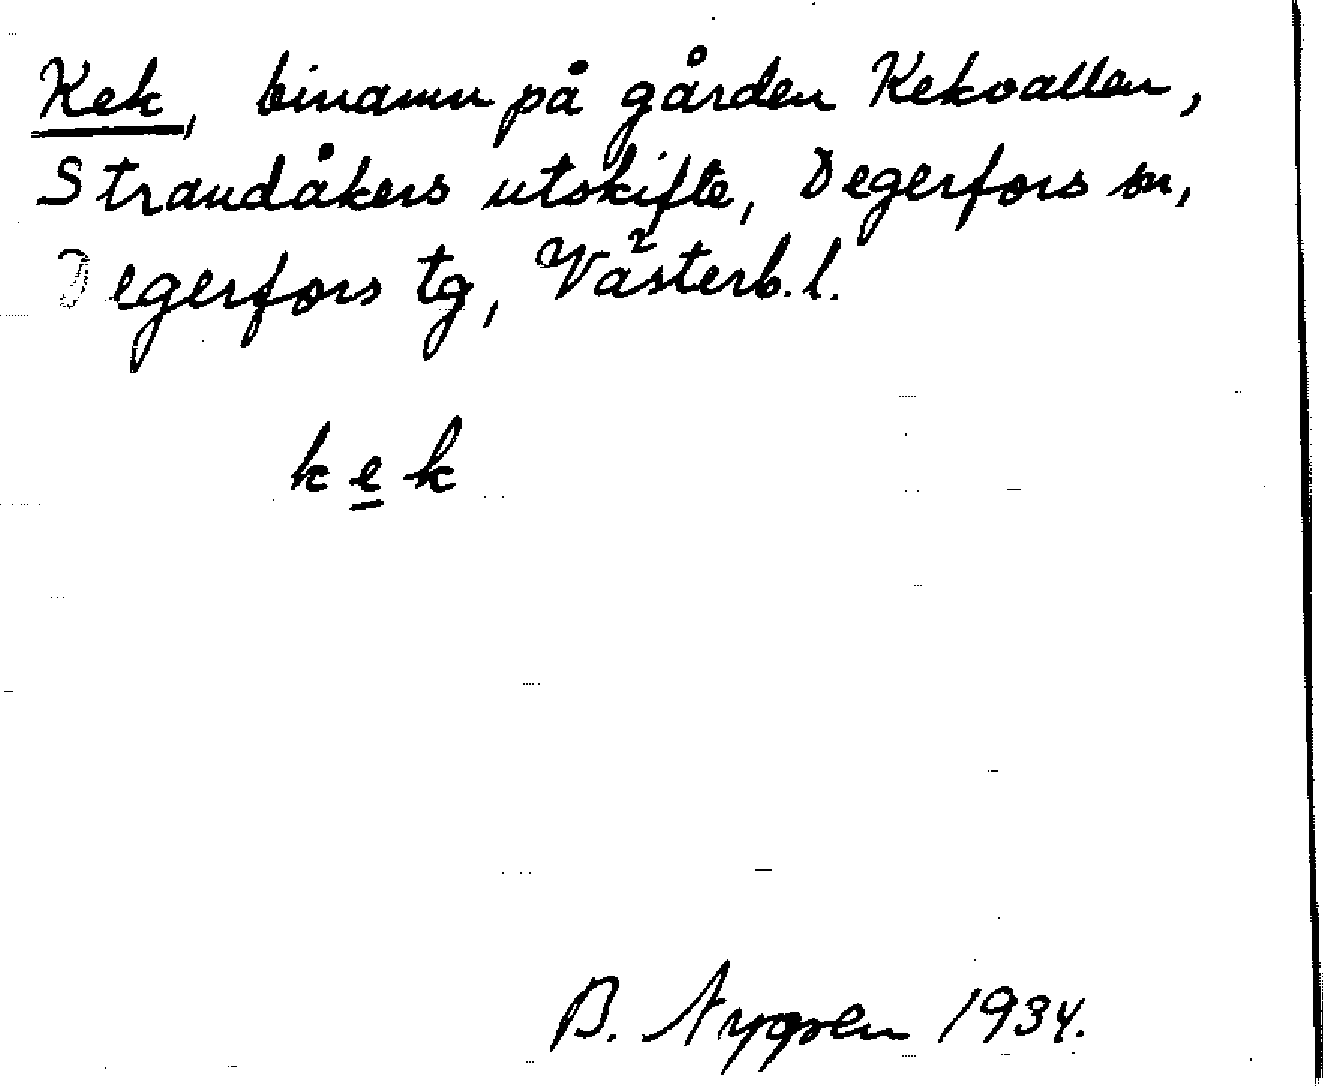 Kek, binamn på gården Kekvallen,
Strandåkers utskifte, Degerfors sn,
Degerfors tg, Västerb. l.
kek
B. Nygren 1934.